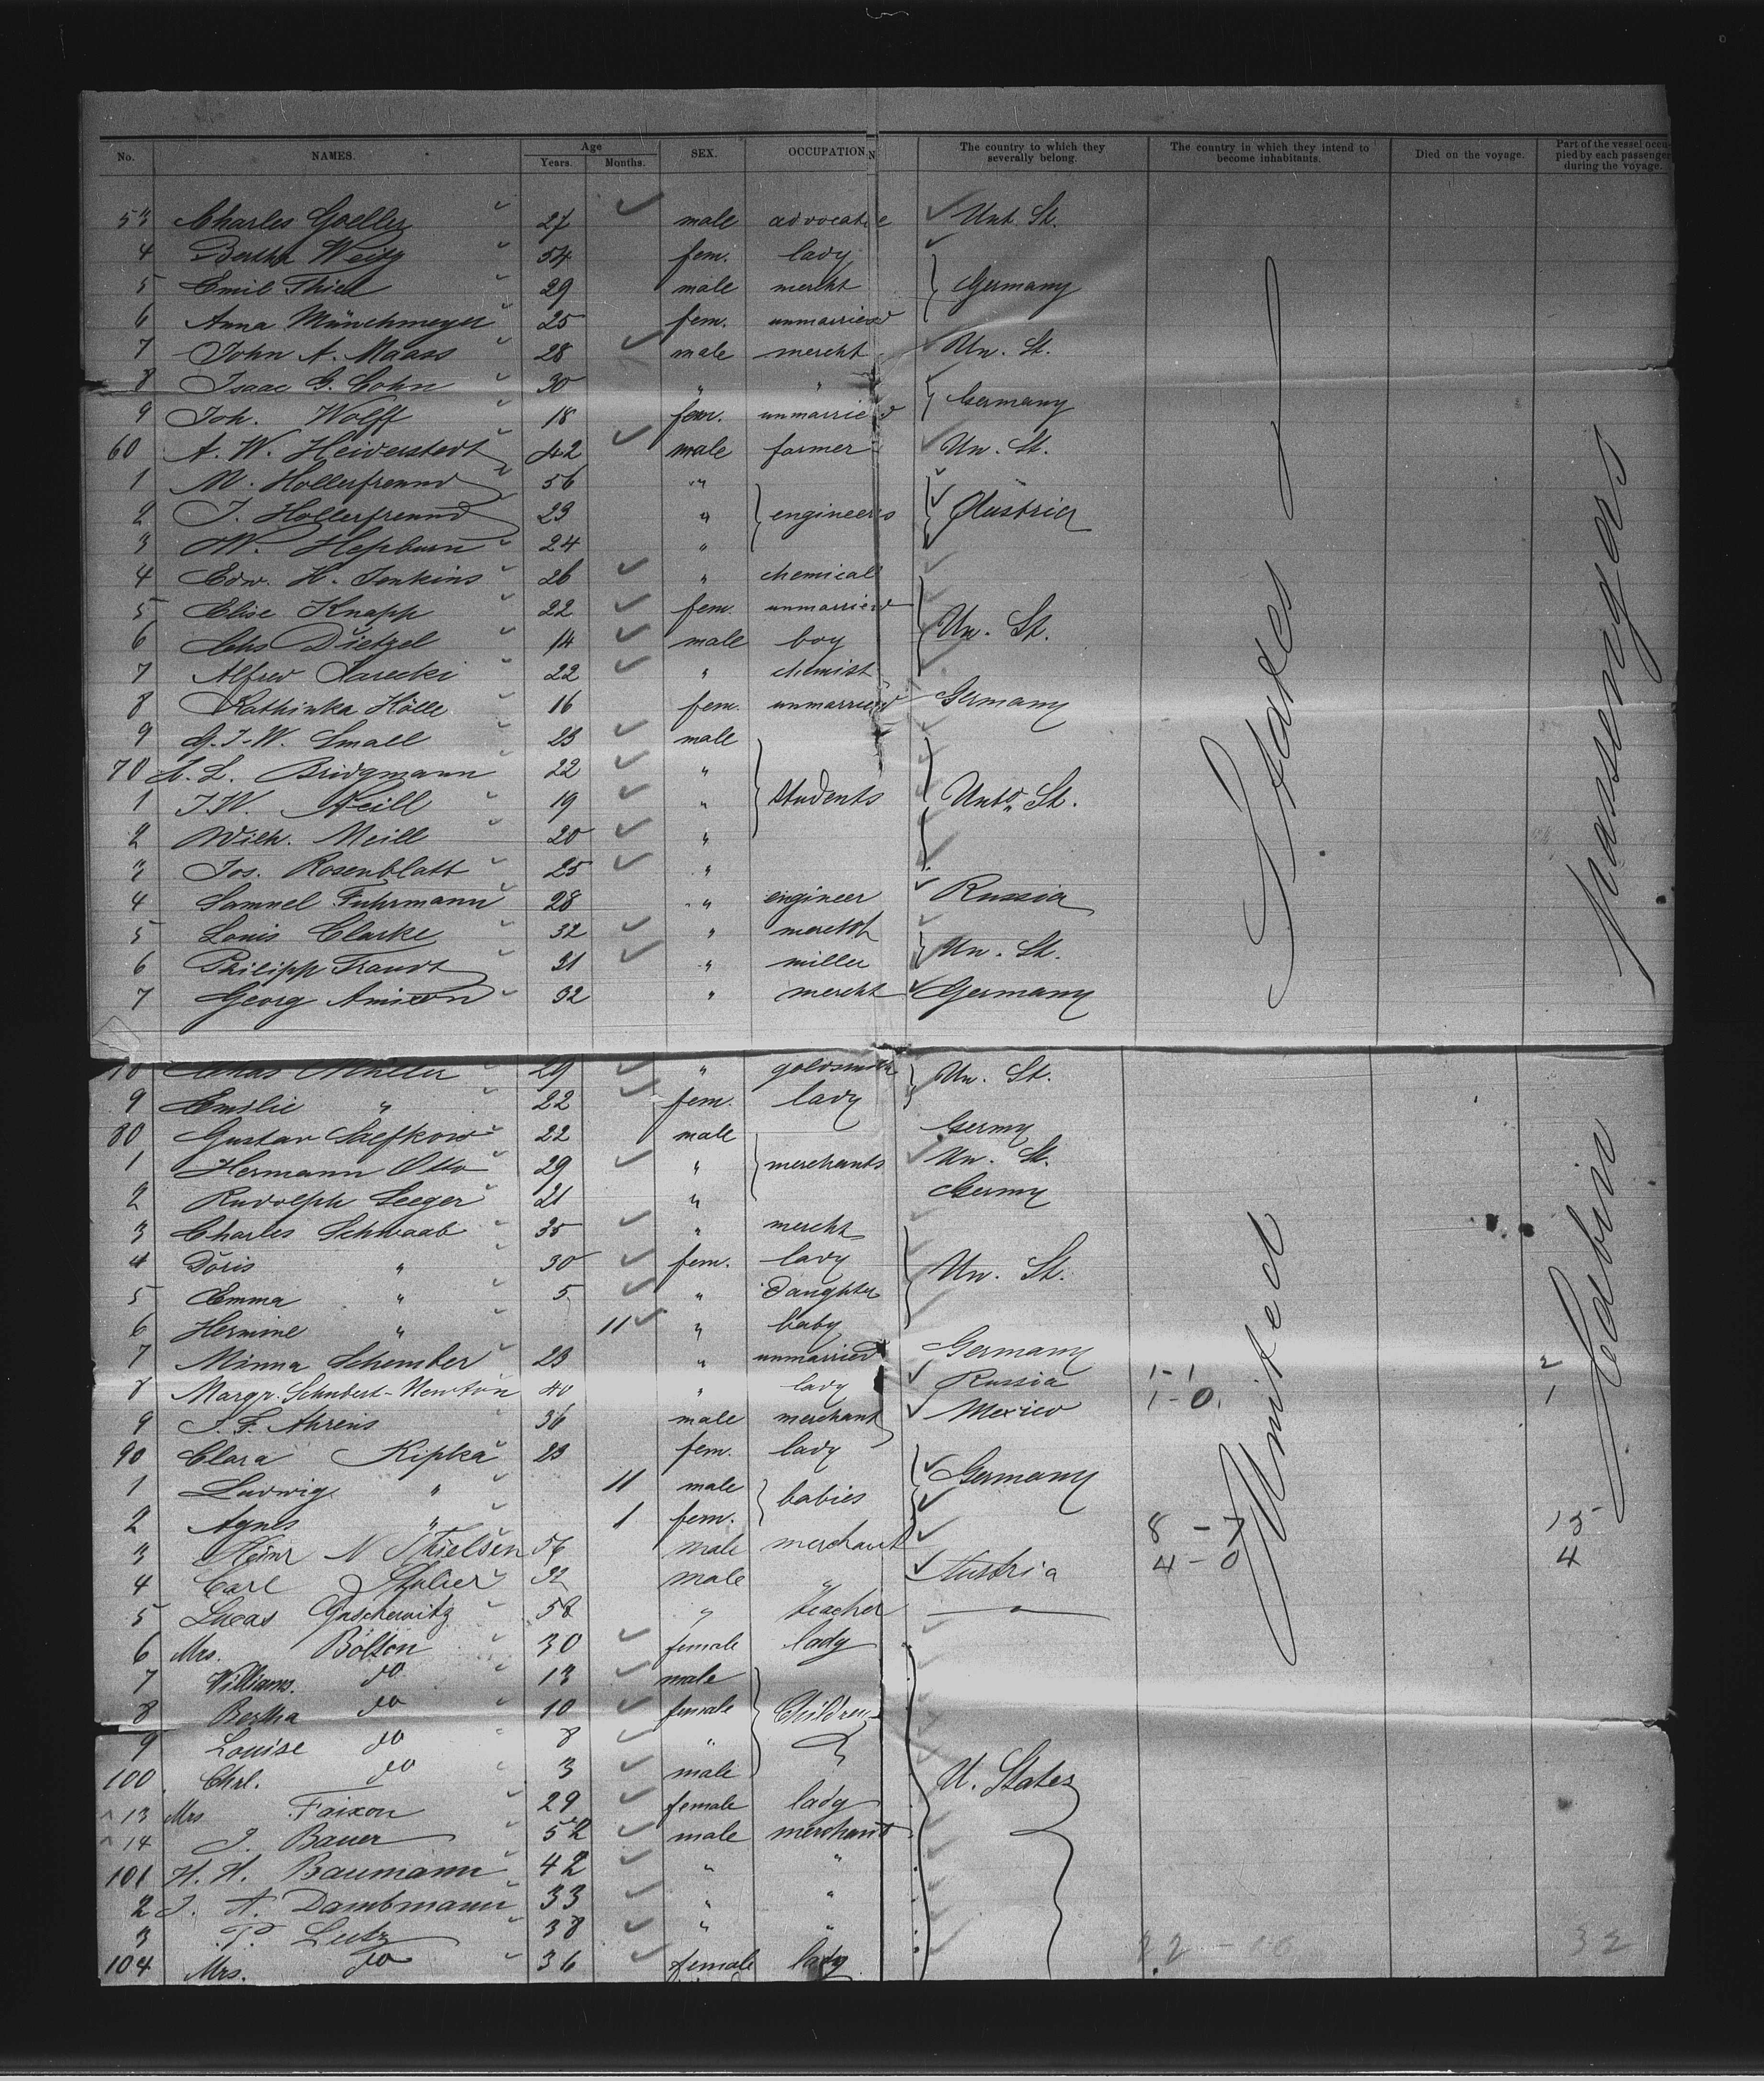 No. NAMES. Age Years. Months. SEX. OCCUPATION. The country to which they severally belong. The country in which they intend to become inhabitants. Died on the voyage. Part of the vessel occupied by each passenger during the voyage.
53 Charles Goeller 27 male advocate Unt. St.
4 Bertha Weitz 54 fem. lady
5 Emil Thiel 29 male mercht Germany
6 Anna Münchmeyer 25 fem. unmarried
7 John A. Maass 28 male mercht Un. St.
8 Isaac G. Cohn 30 " "
9 Joh. Wolff 18 fem. unmarried Germany
60 A. W. Heiderstedt 42 male farmer Un. St.
1 M. Hollerfreund 56 "
2 J. Hollerfreund 23 " engineers Austria
3 W. Hepburn 24 "
4 Edw. H. Jenkins 26 " chemical
5 Elise Knapp 22 fem. unmarried Un. St.
6 Chs Dietzel 14 male boy
7 Alfred Sarecki 22 " chemist
8 Kathinka Hölle 16 fem. unmarried Germany
9 G. J. W. Small 23 male
70 H. L. Bridgmann 22 "
1 J. W. Neill 19 " students Untd. St.
2 Wilh. Meill 20 "
3 Jos. Rosenblatt 25 "
4 Samuel Fuhrmann 28 " engineer Russia
5 Louis Clarke 32 " mercht
6 Philipp Traudt 31 " miller Un. St.
7 Georg Amixon 32 " mercht Germany
States
passengers
29 " goldsmith Un. St.
9 Emilie " 22 fem. lady
80 Gustav Saefkow 22 male Germy
1 Hermann Otto 29 " merchants Un. St.
2 Rudolph Seeger 21 " Germy
3 Charles Schwaab 35 " mercht
4 Doris " 30 fem. lady Un. St.
5 Emma " 5 " daughter
6 Hermine " 11 " baby
7 Minna Schember 23 " unmarried Germany
8 Margr. Schubert-Newton 40 " lady Russia 1-1 2
9 J. F. Ahrens 36 male merchant Mexico 1-0. 1
90 Clara Kipka 23 fem. lady
1 Ludwig " 11 male babies Germany
2 Agnes " 1 fem.
3 Heinr N Thielsen 56 male merchant 8 - 7 15
4 Carl Stulier 32 male " Austria 4 - 0 4
5 Lucas Gaschewitz 58 " teacher
6 Mrs. Bölton 30 female lady
7 Williams. do 13 male
8 Bertha do 10 female Children
9 Louise do 8 "
100 Chrl. do 3 male U. States
13 Mrs Faixon 29 female lady
14 J. Bauer 52 male merchant
101 H. H. Baumann 42 " "
2 J. A. Dambmann 33 " "
3 P. Lutz 38 " "
104 Mrs. do 36 female lady 32
United
Cabin